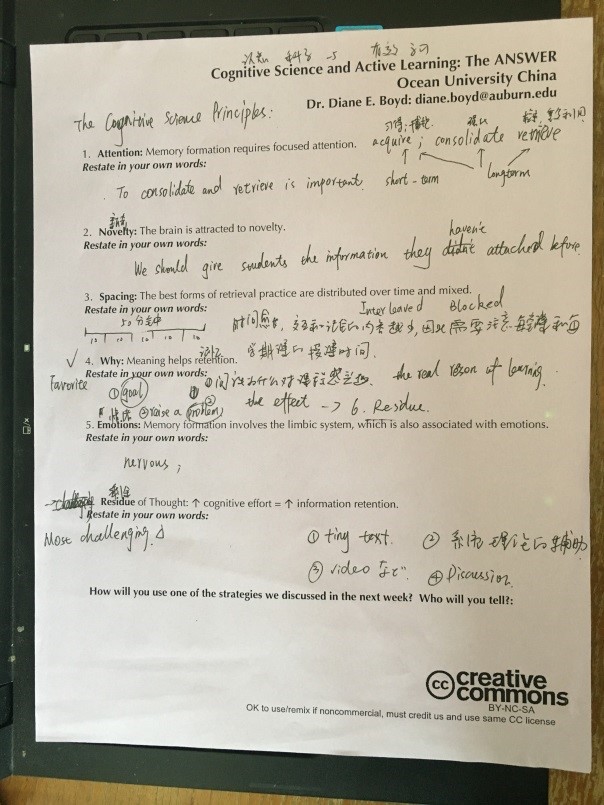 认知 科学 与 有效 学习
Cognitive Science and Active Learning: The ANSWER
Ocean University China
Dr. Diane E. Boyd: diane.boyd@auburn.edu
The Cognitive Science Principles:
acquire ; consolidate retrieve
1. Attention: Memory formation requires focused attention.
Restate in your own words:
To consolidate and retrieve is important. short-term longterm
2. Novelty: The brain is attracted to novelty.
Restate in your own words:
haven't
We should give students the information they didn't attached before.
3. Spacing: The best forms of retrieval practice are distributed over time and mixed.
Restate in your own words:
Interleaved Blocked
50分钟
10 10 10 10 10
4. Why: Meaning helps retention.
Restate in your own words:
Favorite
① goal
the real reason of learning.
② raise a problem
the effect → 6. Residue.
5. Emotions: Memory formation involves the limbic system, which is also associated with emotions.
Restate in your own words:
nervous ;
Residue of Thought: ↑ cognitive effort = ↑ information retention.
Restate in your own words:
Most challenging.
① tiny text. ② 系统理论的辅助
③ video など ④ Discussion.
How will you use one of the strategies we discussed in the next week? Who will you tell?:
cc creative commons
BY-NC-SA
OK to use/remix if noncommercial, must credit us and use same CC license